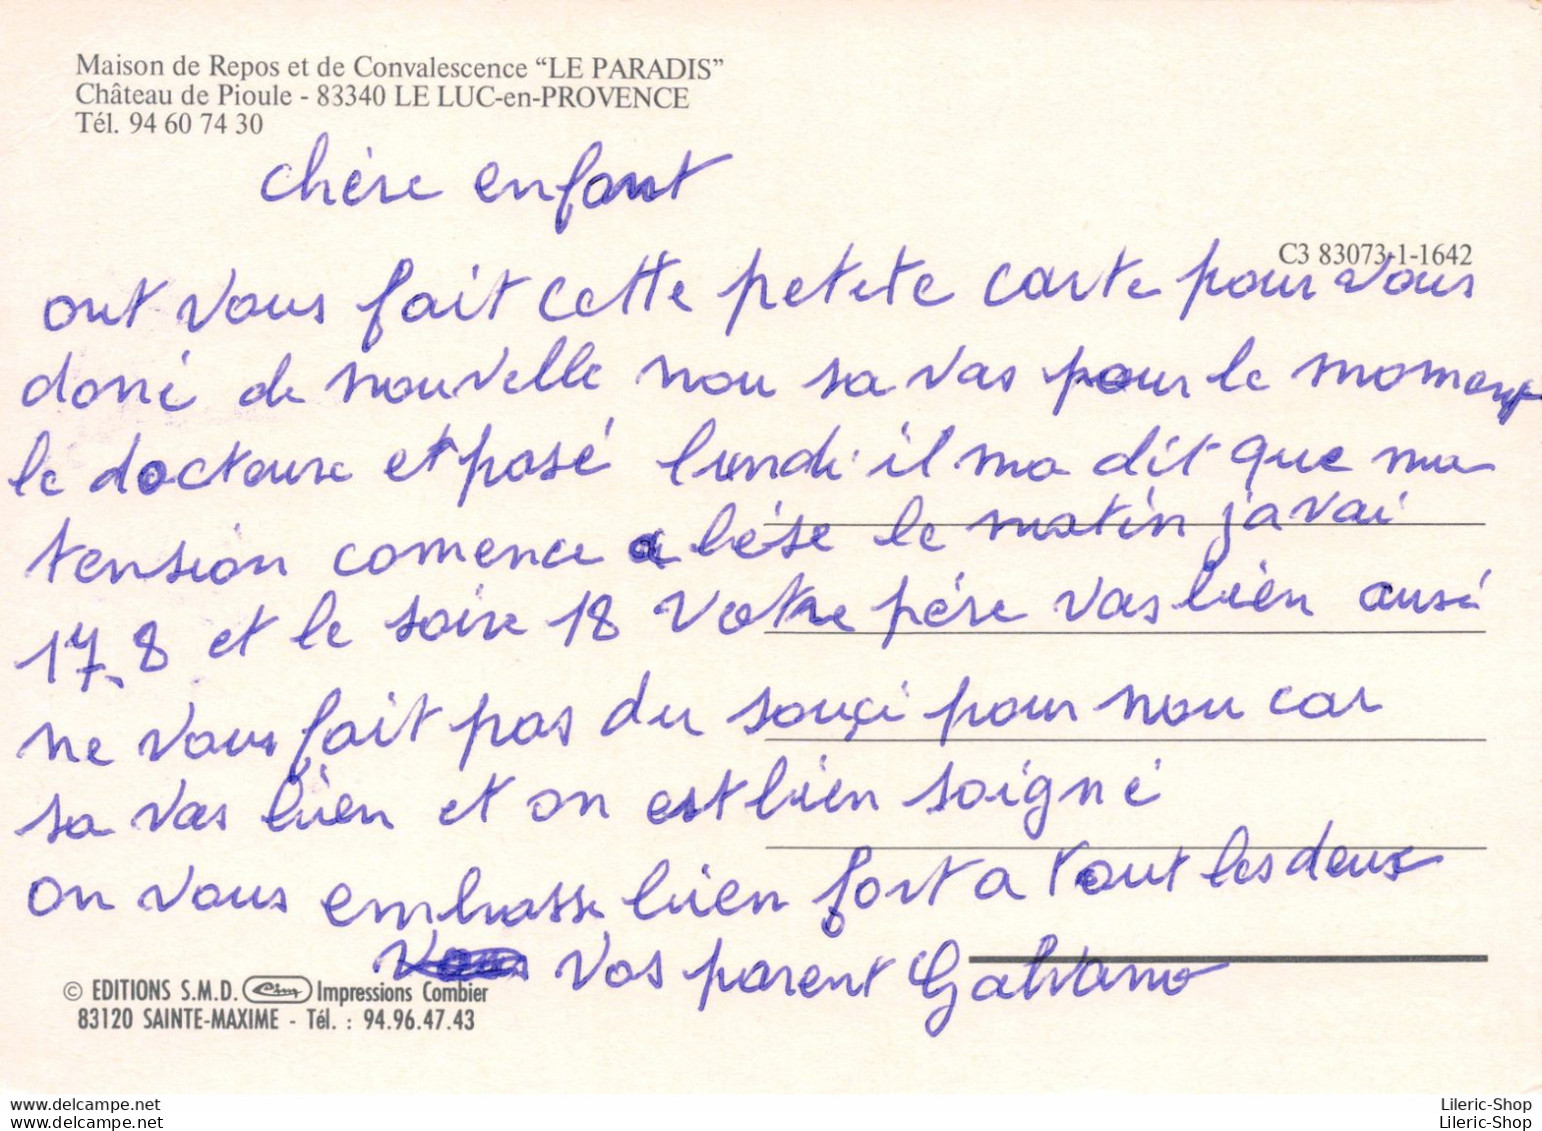 Maison de Repos et de Convalescence “LE PARADIS”
Château de Pioule - 83340 LE LUC-en-PROVENCE
Tél. 94 60 74 30
chère enfant
C3 83073-1-1642
ont vous fait cette petete carte pour vous
doné de nouvelle nou sa vas pour le moment
le docteure et pasé lundi il ma dit que ma
tension comence a bése le matin javai
17.8 et le soire 18 votre pére vas bien ausi
ne vous fait pas du souçi pour nou car
sa vas bien et on est bien soigné
on vous embrasse bien fort a tout les deux
Vos parent Galvano
© EDITIONS S.M.D. Cim Impressions Combier
83120 SAINTE-MAXIME - Tél. : 94.96.47.43
Lileric-Shop.com
Lileric-Shop.com
Lileric-Shop
Lileric-Shop